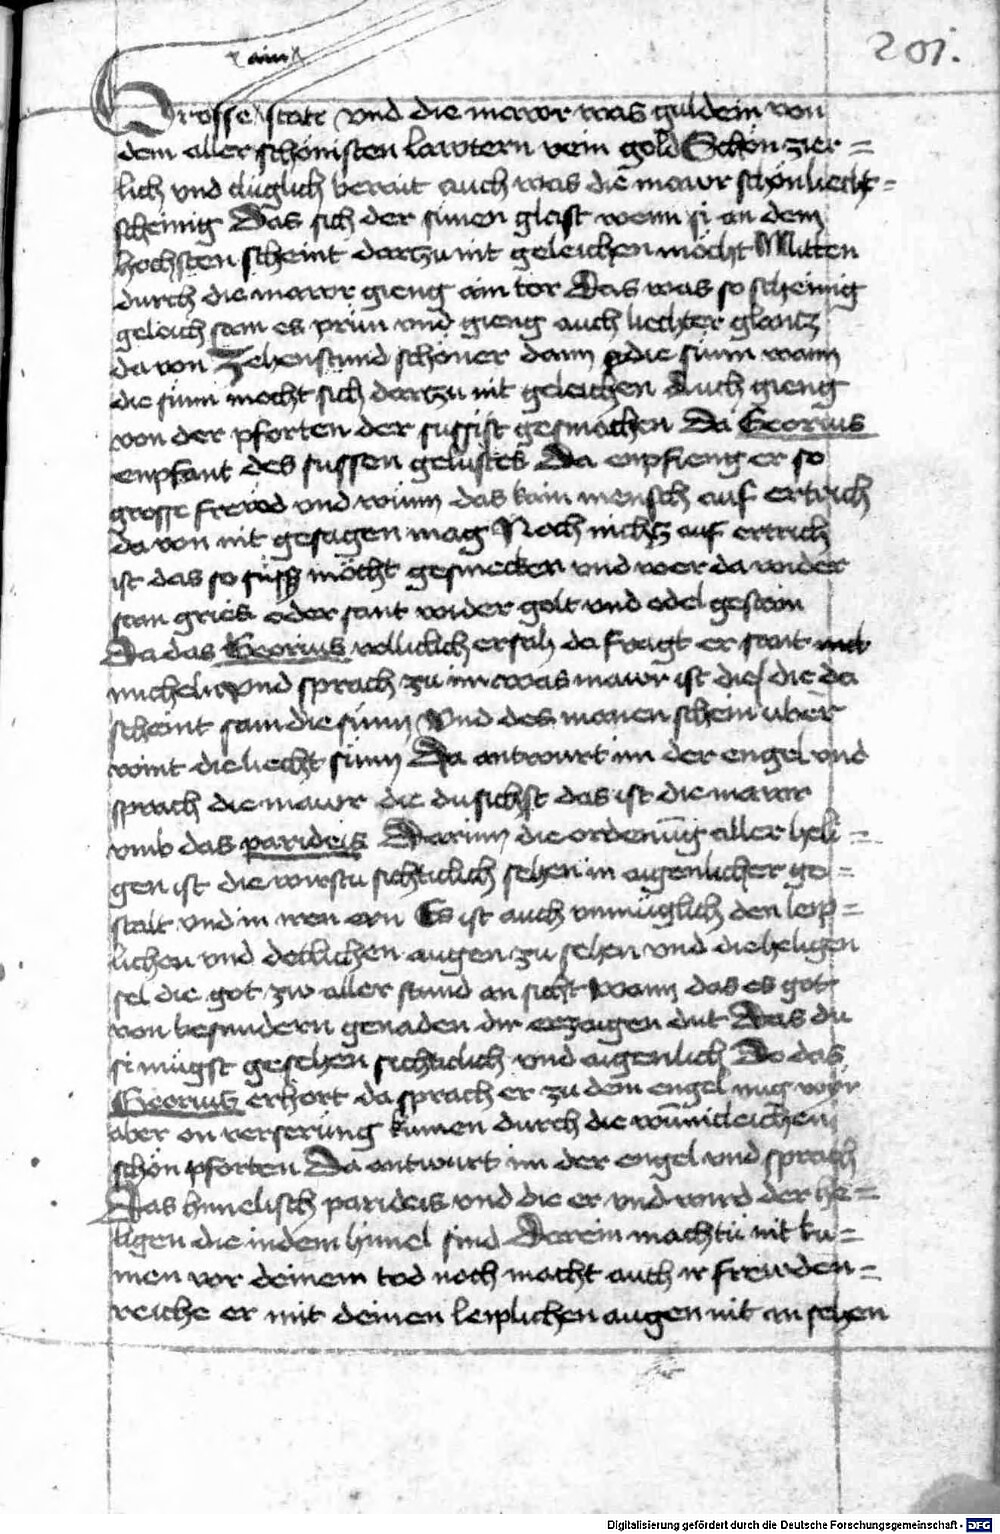 201.
ain
Grosse stat vnd die mawr was guldein von
dem aller schönisten lawtern vein gold Schön zier=
lich vnd cluglich berait auch was die mawr schön liecht=
scheinig Das sich der sunen glast wenn si an dem
hochsten scheint dartzu nit geleichen möcht Mitten
durch die mawr gieng ain tor Das was so scheinig
geleich sam es prun vnd gieng auch liechter glantz
da von Zehenstund schöner dann die sunn wann
die sunn mocht sich dartzu nit geleichen Auch gieng
von der pforten der sussist gesmachen Da Georius
enpfant des sussen gelustes Da enpfieng er so
grosse frewd vnd wunn das kain mensch auf ertrich
da von nit gesagen mag Noch nichtz auf ertrich
ist das so süss möcht gesmecken vnd wer da wider
sam gries oder sant wider golt vnd edel gestain
Da das Georius volliclich ersah da fragt er sant
micheln vnd sprach zu im was mawr ist die die da
scheint sam die sunn Vnd des monen schein vber
wint die liecht sunn Da antwurt im der engel vnd
sprach die mawr die du sichst das ist die mawr
vmb das parideis Darinn die ordenung aller heli=
gen ist die wirstu sichticlich sehen in aigenlicher ge=
stalt vnd in iren ern Es ist auch vnmüglich den leip=
lichen vnd dötlichen augen zu sehen vnd die heligen
sel die got zw aller stund an sicht Wann das es got
von besundern genaden dir erzaigen dut Das du
si mügst gesehen sichticlich vnd aigenlich Do das
Georius erhort da sprach er zu dem engel mug wir
aber on verserung kumen durch die wunicleichen
schön pforten Da antwurt im der engel vnd sprach
Das himelisch parideis vnd die er vnd wird der he=
ligen die in dem himel sind Darein machtu nit ku=
men vor deinem tod noch macht auch ir frewden=
reiche er mit deinen leiplichen augen nit an sehen
Digitalisierung gefördert durch die Deutsche Forschungsgemeinschaft - DFG